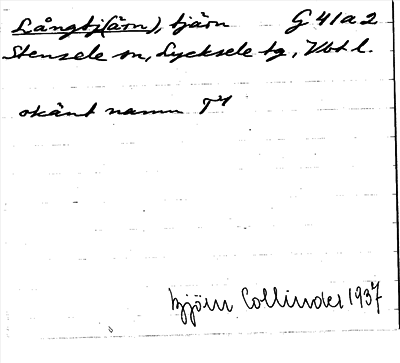 Långtj(ärn), tjärn G 41 a 2
Stensele sn, Lycksele tg, Vbtl.
okänt namn
Björn Collinder 1937